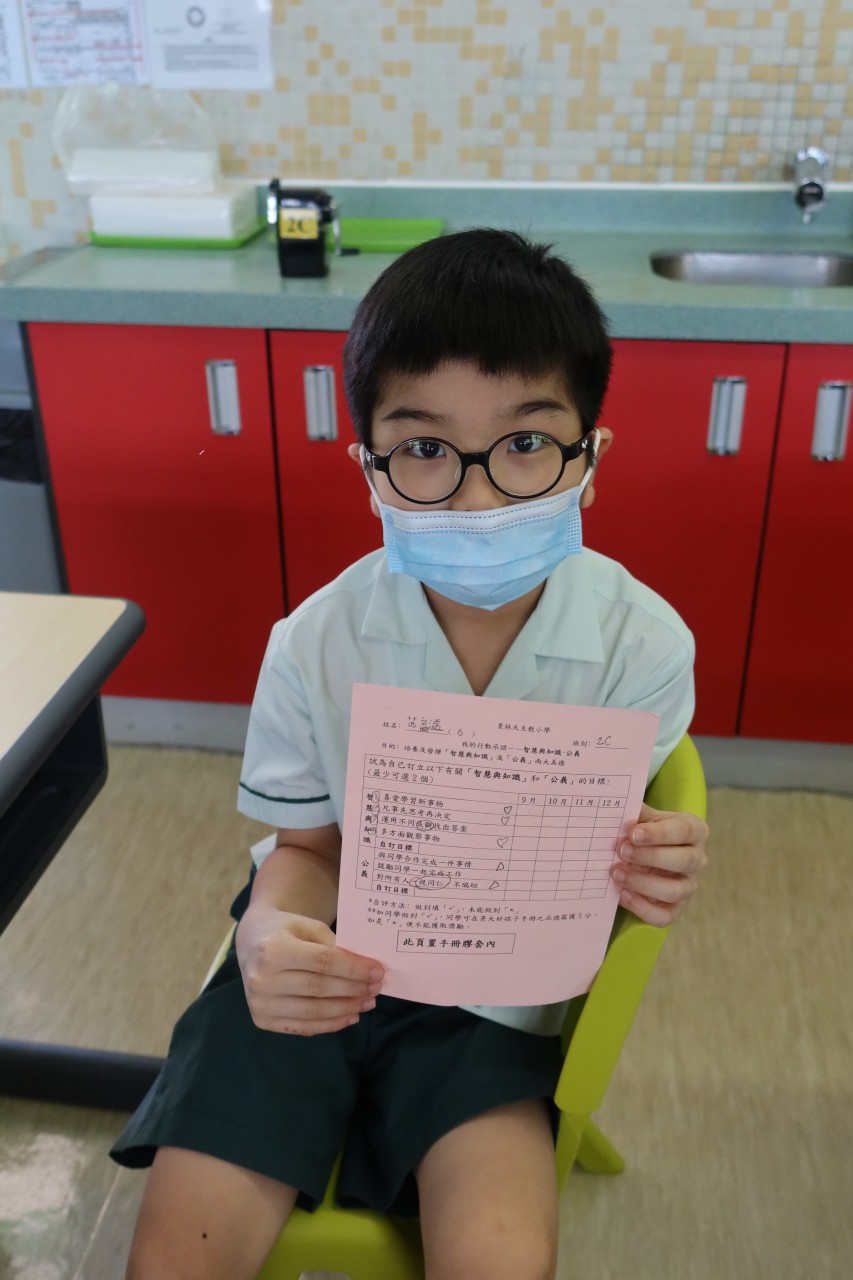 2C
景林天主教小學
姓名: (6) 班別: 2C
我的行動承諾——智慧與知識·公義
目的: 培養及發揮「智慧與知識」及「公義」兩大美德
試為自己訂立以下有關「智慧與知識」和「公義」的目標:
(最少可選2個)
9月 10月 11月 12月
智慧與知識
喜愛學習新事物
凡事先思考再決定
運用不同感觀找出答案
多方面觀察事物
自訂目標
公義
與同學合作完成一件事情
鼓勵同學一起完成工作
對所有人一視同仁,不偏袒
自訂目標
*自評方法: 做到填「✓」,未能做到「×」
**如同學做到「✓」,同學可在景天好孩子手冊之品德篇獲5分,
如是「×」便不能獲取獎勵。
此頁置手冊膠套內